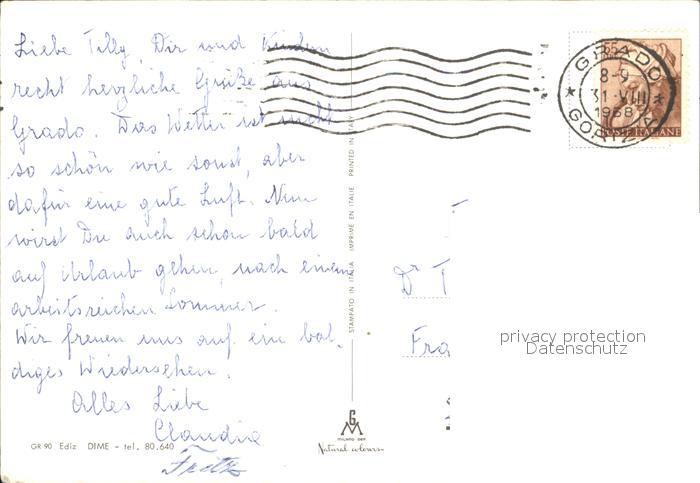 Liebe Tilly, Dir und Kindern
recht herzliche Grüße aus
Grado. Das Wetter ist nicht
so schön wie sonst, aber
dafür eine gute Luft. Nun
wirst Du auch schon bald
auf Urlaub gehen, nach einem
arbeitsreichen Sommer.
Wir freuen uns auf ein bal-
diges Wiedersehen.
Alles Liebe
Claudia
Fritz
GR 90 Ediz DIME - tel. 80.640
STAMPATO IN ITALIA IMPRIMÉ EN ITALIE PRINTED IN ITALY
GM
MILANO DEP.
Natural colours
GRADO
8-9
31.VIII
1968
GORIZIA
55
POSTE ITALIANE
Dr T
Fra
privacy protection
Datenschutz